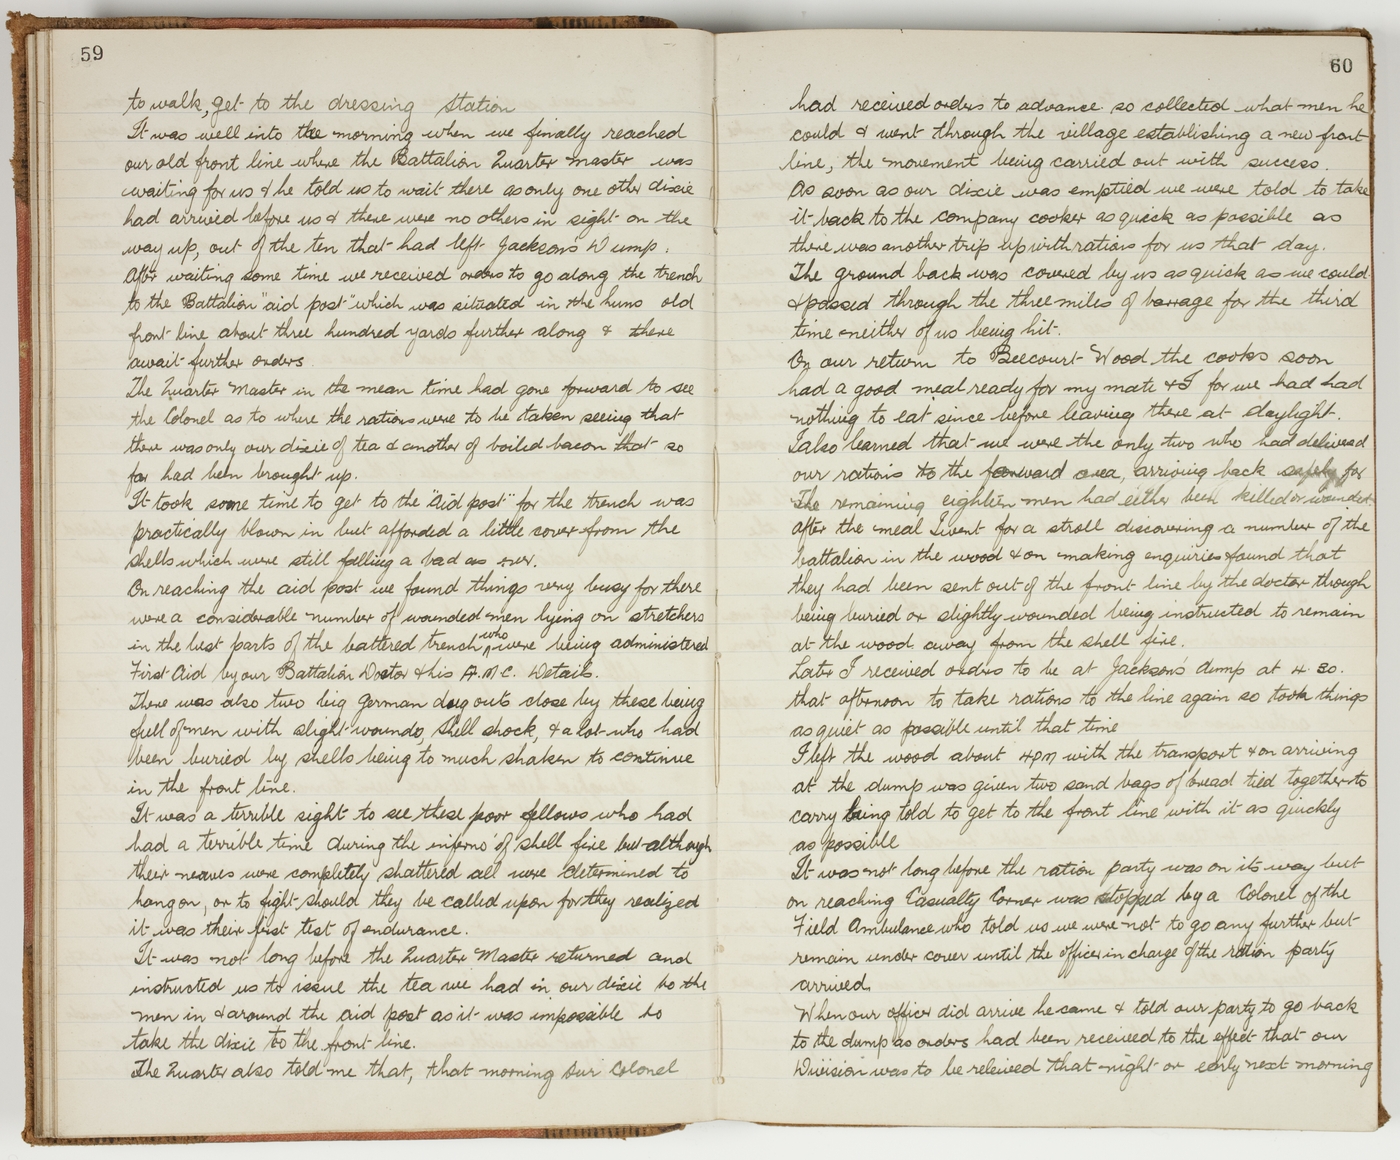 59
to walk, get to the dressing station
It was well into the morning when we finally reached
our old front line where the Battalion Quarter Master was
waiting for us & he told us to wait there as only one other dixie
had arrived before us & there were no others in sight on the
way up, out of the ten that had left Jackson's Dump.
After waiting some time we received orders to go along the trench
to the Battalion "aid post" which was situated in the huns old
front line about three hundred yards further along & there
await further orders
The Quarter Master in the mean time had gone forward to see
the Colonel as to where the rations were to be taken seeing that
there was only our dixie of tea & another of boiled bacon that so
far had been brought up.
It took some time to get to the "aid post" for the trench was
practically blown in but afforded a little cover from the
shells which were still falling a bad as ever.
On reaching the aid post we found things very busy for there
were a considerable number of wounded men lying on stretchers
in the best parts of the battered trench who were being administered
First Aid by our Battalion Doctor & his A.M.C. Details.
There was also two big German dug outs close by these being
full of men with slight wounds, shell shock, & a lot who had
been buried by shells being to much shaken to continue
in the front line.
It was a terrible sight to see these poor fellows who had
had a terrible time during the inferno of shell fire but although
their nerves were completely shattered all were determined to
hang on, or to fight should they be called upon for they realized
it was their first test of endurance.
It was not long before the Quarter Master returned and
instructed us to issue the tea we had in our dixie to the
men in & around the aid post as it was impossible to
take the dixie to the front line.
The Quarter also told me that, that morning our Colonel
60
had received orders to advance so collected what men he
could & went through the village establishing a new front
line, the movement being carried out with success.
As soon as our dixie was emptied we were told to take
it back to the company cooker as quick as possible as
there was another trip up with rations for us that day.
The ground back was covered by us as quick as we could
& passed through the three miles of barrage for the third
time neither of us being hit.
On our return to Beecourt Wood the cooks soon
had a good meal ready for my mate & I for we had had
nothing to eat since before leaving there at daylight.
I also learned that we were the only two who had delivered
our rations to the forward area, arriving back safely for
The remaining eighteen men had either been killed or wounded
After the meal I went for a stroll discovering a number of the
battalion in the wood & on making enquiries found that
they had been sent out of the front line by the doctor through
being buried or slightly wounded being instructed to remain
at the wood away from the shell fire.
Later I received orders to be at Jackson's dump at 4.30.
that afternoon to take rations to the line again so took things
as quiet as possible until that time
I left the wood about 4pm with the transport & on arriving
at the dump was given two sand bags of bread tied together to
carry being told to get to the front line with it as quickly
as possible
It was not long before the ration party was on its way but
on reaching Casualty Corner was stopped by a Colonel of the
Field Ambulance who told us we were not to go any further but
remain under cover until the officer in charge of the ration party
arrived.
When our officer did arrive he came & told our party to go back
to the dump as orders had been received to the effect that our
Division was to be releived that night or early next morning